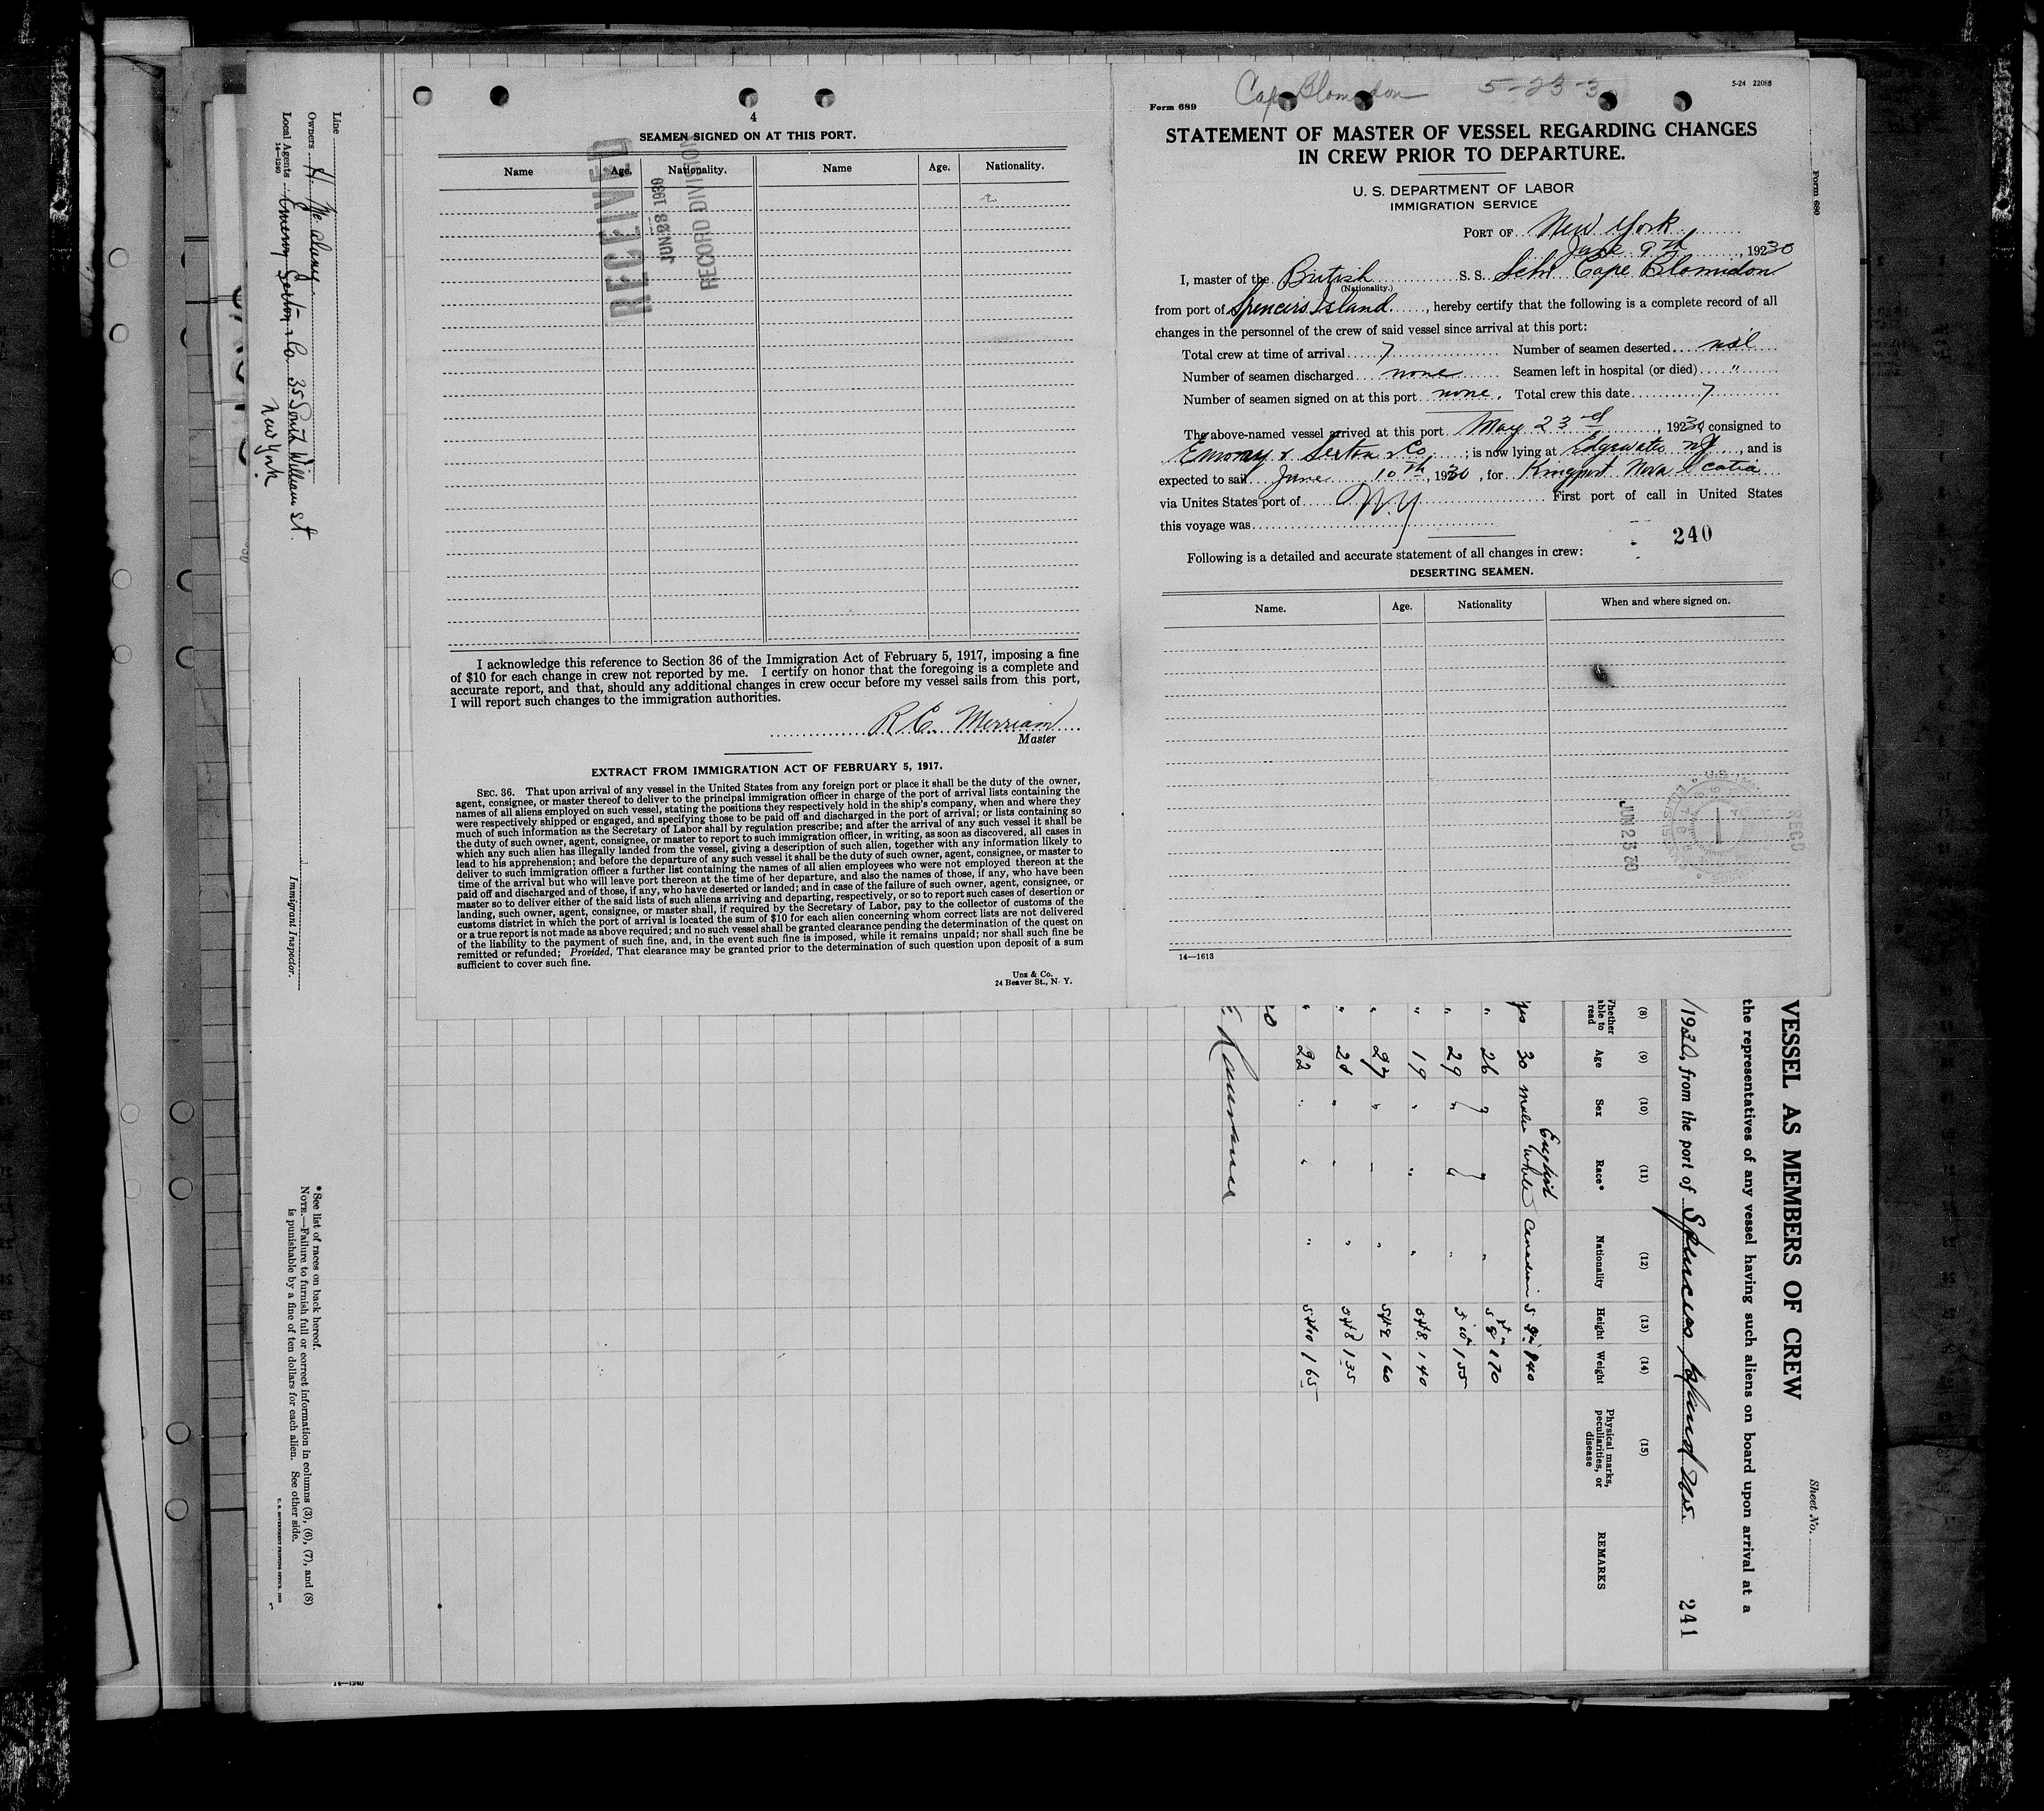 4
SEAMEN SIGNED ON AT THIS PORT.
Name Age. Nationality. Name Age. Nationality.
RECEIVED
JUN 28 1930
RECORD DIVISION
I acknowledge this reference to Section 36 of the Immigration Act of February 5, 1917, imposing a fine
of $10 for each change in crew not reported by me. I certify on honor that the foregoing is a complete and
accurate report, and that, should any additional changes in crew occur before my vessel sails from this port,
I will report such changes to the immigration authorities.
R C. Merriam
Master
EXTRACT FROM IMMIGRATION ACT OF FEBRUARY 5, 1917.
SEC. 36. That upon arrival of any vessel in the United States from any foreign port or place it shall be the duty of the owner,
agent, consignee, or master thereof to deliver to the principal immigration officer in charge of the port of arrival lists containing the
names of all aliens employed on such vessel, stating the positions they respectively hold in the ship's company, when and where they
were respectively shipped or engaged, and specifying those to be paid off and discharged in the port of arrival; or lists containing so
much of such information as the Secretary of Labor shall by regulation prescribe; and after the arrival of any such vessel it shall be
the duty of such owner, agent, consignee, or master to report to such immigration officer, in writing, as soon as discovered, all cases in
which any such alien has illegally landed from the vessel, giving a description of such alien, together with any information likely to
lead to his apprehension; and before the departure of any such vessel it shall be the duty of such owner, agent, consignee, or master to
deliver to such immigration officer a further list containing the names of all alien employees who were not employed thereon at the
time of the arrival but who will leave port thereon at the time of her departure, and also the names of those, if any, who have been
paid off and discharged and of those, if any, who have deserted or landed; and in case of the failure of such owner, agent, consignee, or
master so to deliver either of the said lists of such aliens arriving and departing, respectively, or so to report such cases of desertion or
landing, such owner, agent, consignee, or master shall, if required by the Secretary of Labor, pay to the collector of customs of the
customs district in which the port of arrival is located the sum of $10 for each alien concerning whom correct lists are not delivered
or a true report is not made as above required; and no such vessel shall be granted clearance pending the determination of the quest on
of the liability to the payment of such fine, and, in the event such fine is imposed, while it remains unpaid; nor shall such fine be
remitted or refunded; Provided, That clearance may be granted prior to the determination of such question upon deposit of a sum
sufficient to cover such fine.
Unz & Co.
24 Beaver St., N. Y.
Cape Blomidon 5-23-3
5-24 22086
Form 689
STATEMENT OF MASTER OF VESSEL REGARDING CHANGES
IN CREW PRIOR TO DEPARTURE.
U. S. DEPARTMENT OF LABOR
IMMIGRATION SERVICE
PORT OF New York
June 9th, 1930
I, master of the British S. S. Schr Cape Blomidon
(Nationality.)
from port of Spencers Island, hereby certify that the following is a complete record of all
changes in the personnel of the crew of said vessel since arrival at this port:
Total crew at time of arrival 7 Number of seamen deserted nil
Number of seamen discharged none Seamen left in hospital (or died) "
Number of seamen signed on at this port none. Total crew this date 7
The above-named vessel arrived at this port May 23rd, 1930, consigned to
Emorny & Sexton & Co; is now lying at Edgewater NJ, and is
expected to sail June 10th, 1930, for Kingport Nova Scotia
via Unites States port of N.Y First port of call in United States
this voyage was
240
Following is a detailed and accurate statement of all changes in crew:
DESERTING SEAMEN.
Name. Age. Nationality When and where signed on.
JUN 23 30
RECD
14—1613
Form 680
VESSEL AS MEMBERS OF CREW
Sheet No.
the representatives of any vessel having such aliens on board upon arrival at a
1930, from the port of Spencers Island N.S. 241
(8) (9) (10) (11) (12) (13) (14) (15)
Whether able to read Age Sex Race* Nationality Height Weight Physical marks, peculiarities, or disease REMARKS
English
yes 30 male white Canadian 5 140
" 26 " " " 5 8 170
" 29 " " " 5 10 155
" 19 " " " 5 8 140
" 27 " " " 160
" 28 " " " 5 8 135
" 22 " " " 5 10 165
Line
Owners H.
Local Agents Emorny Sexton & Co 35 South William St.
New York
14—1240
Immigrant Inspector.
*See list of races on back hereof.
NOTE.—Failure to furnish full or correct information in columns (3), (6), (7), and (8)
is punishable by a fine of ten dollars for each alien. See other side.
14—1240